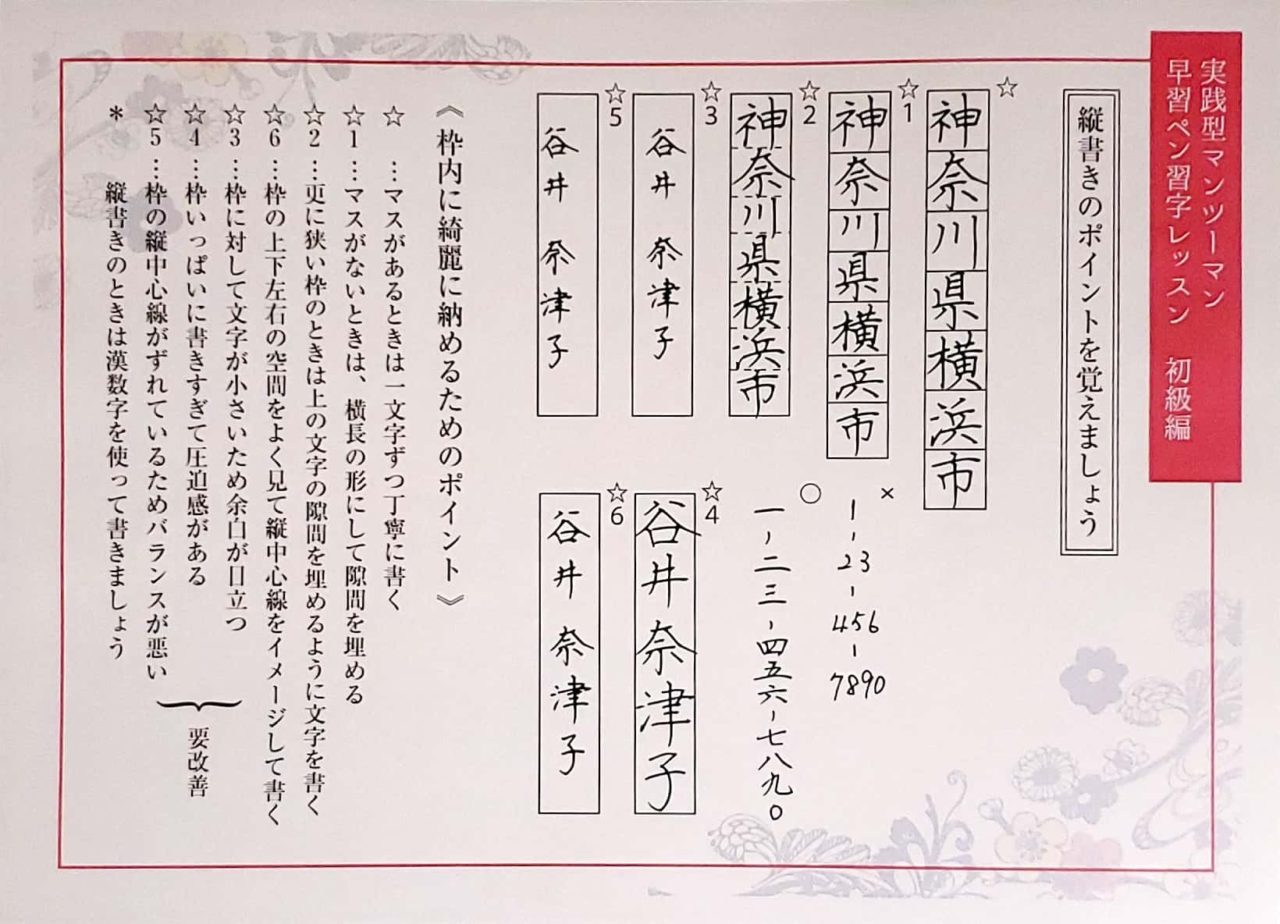 実践型マンツーマン
早習ペン習字レッスン 初級編
縦書きのポイントを覚えましょう
☆
神奈川県横浜市
☆1
神奈川県横浜市
☆2
神奈川県横浜市
×
1-23-456-7890
○
一-二三-四五六-七八九〇
☆3
谷井 奈津子
☆4
谷井奈津子
☆5
谷井 奈津子
☆6
谷井 奈津子
《 枠内に綺麗に納めるためのポイント 》
☆ …マスがあるときは一文字ずつ丁寧に書く
☆1…マスがないときは、横長の形にして隙間を埋める
☆2…更に狭い枠のときは上の文字の隙間を埋めるように文字を書く
☆6…枠の上下左右の空間をよく見て縦中心線をイメージして書く
☆3…枠に対して文字が小さいため余白が目立つ
☆4…枠いっぱいに書きすぎて圧迫感がある
☆5…枠の縦中心線がずれているためバランスが悪い
要改善
* 縦書きのときは漢数字を使って書きましょう